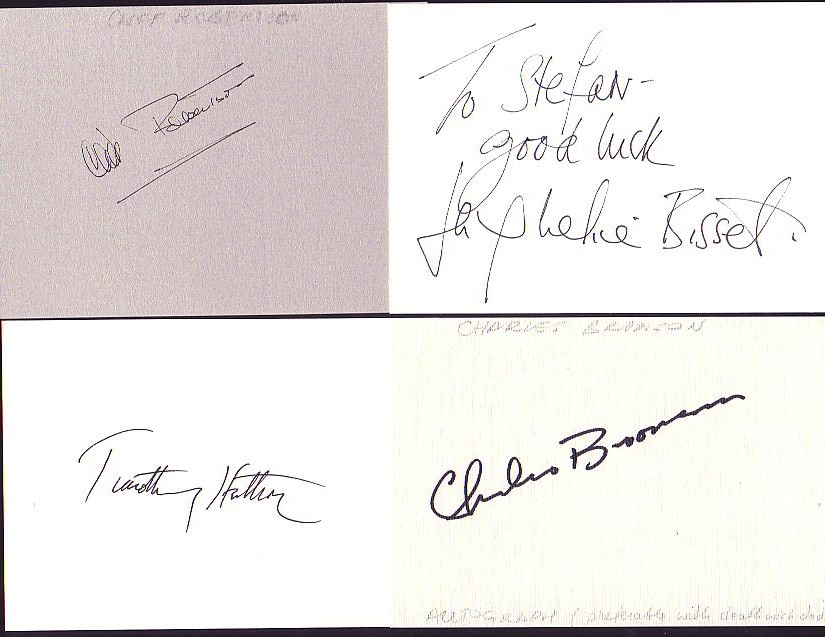 CLIFF ROBERTSON
Cliff Robertson
To Stefan-
good luck
Jacqueline Bisset.
Timothy Hutton
CHARLES BRONSON
Charles Bronson
AUTOGRAPH / preferable with